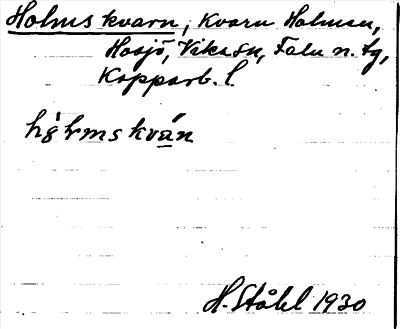 Holms kvarn, Kvarn Holmen,
Hosjö, Vika sn, Falu n. tg,
Kopparb. l.
kván
H. Ståhl 1930